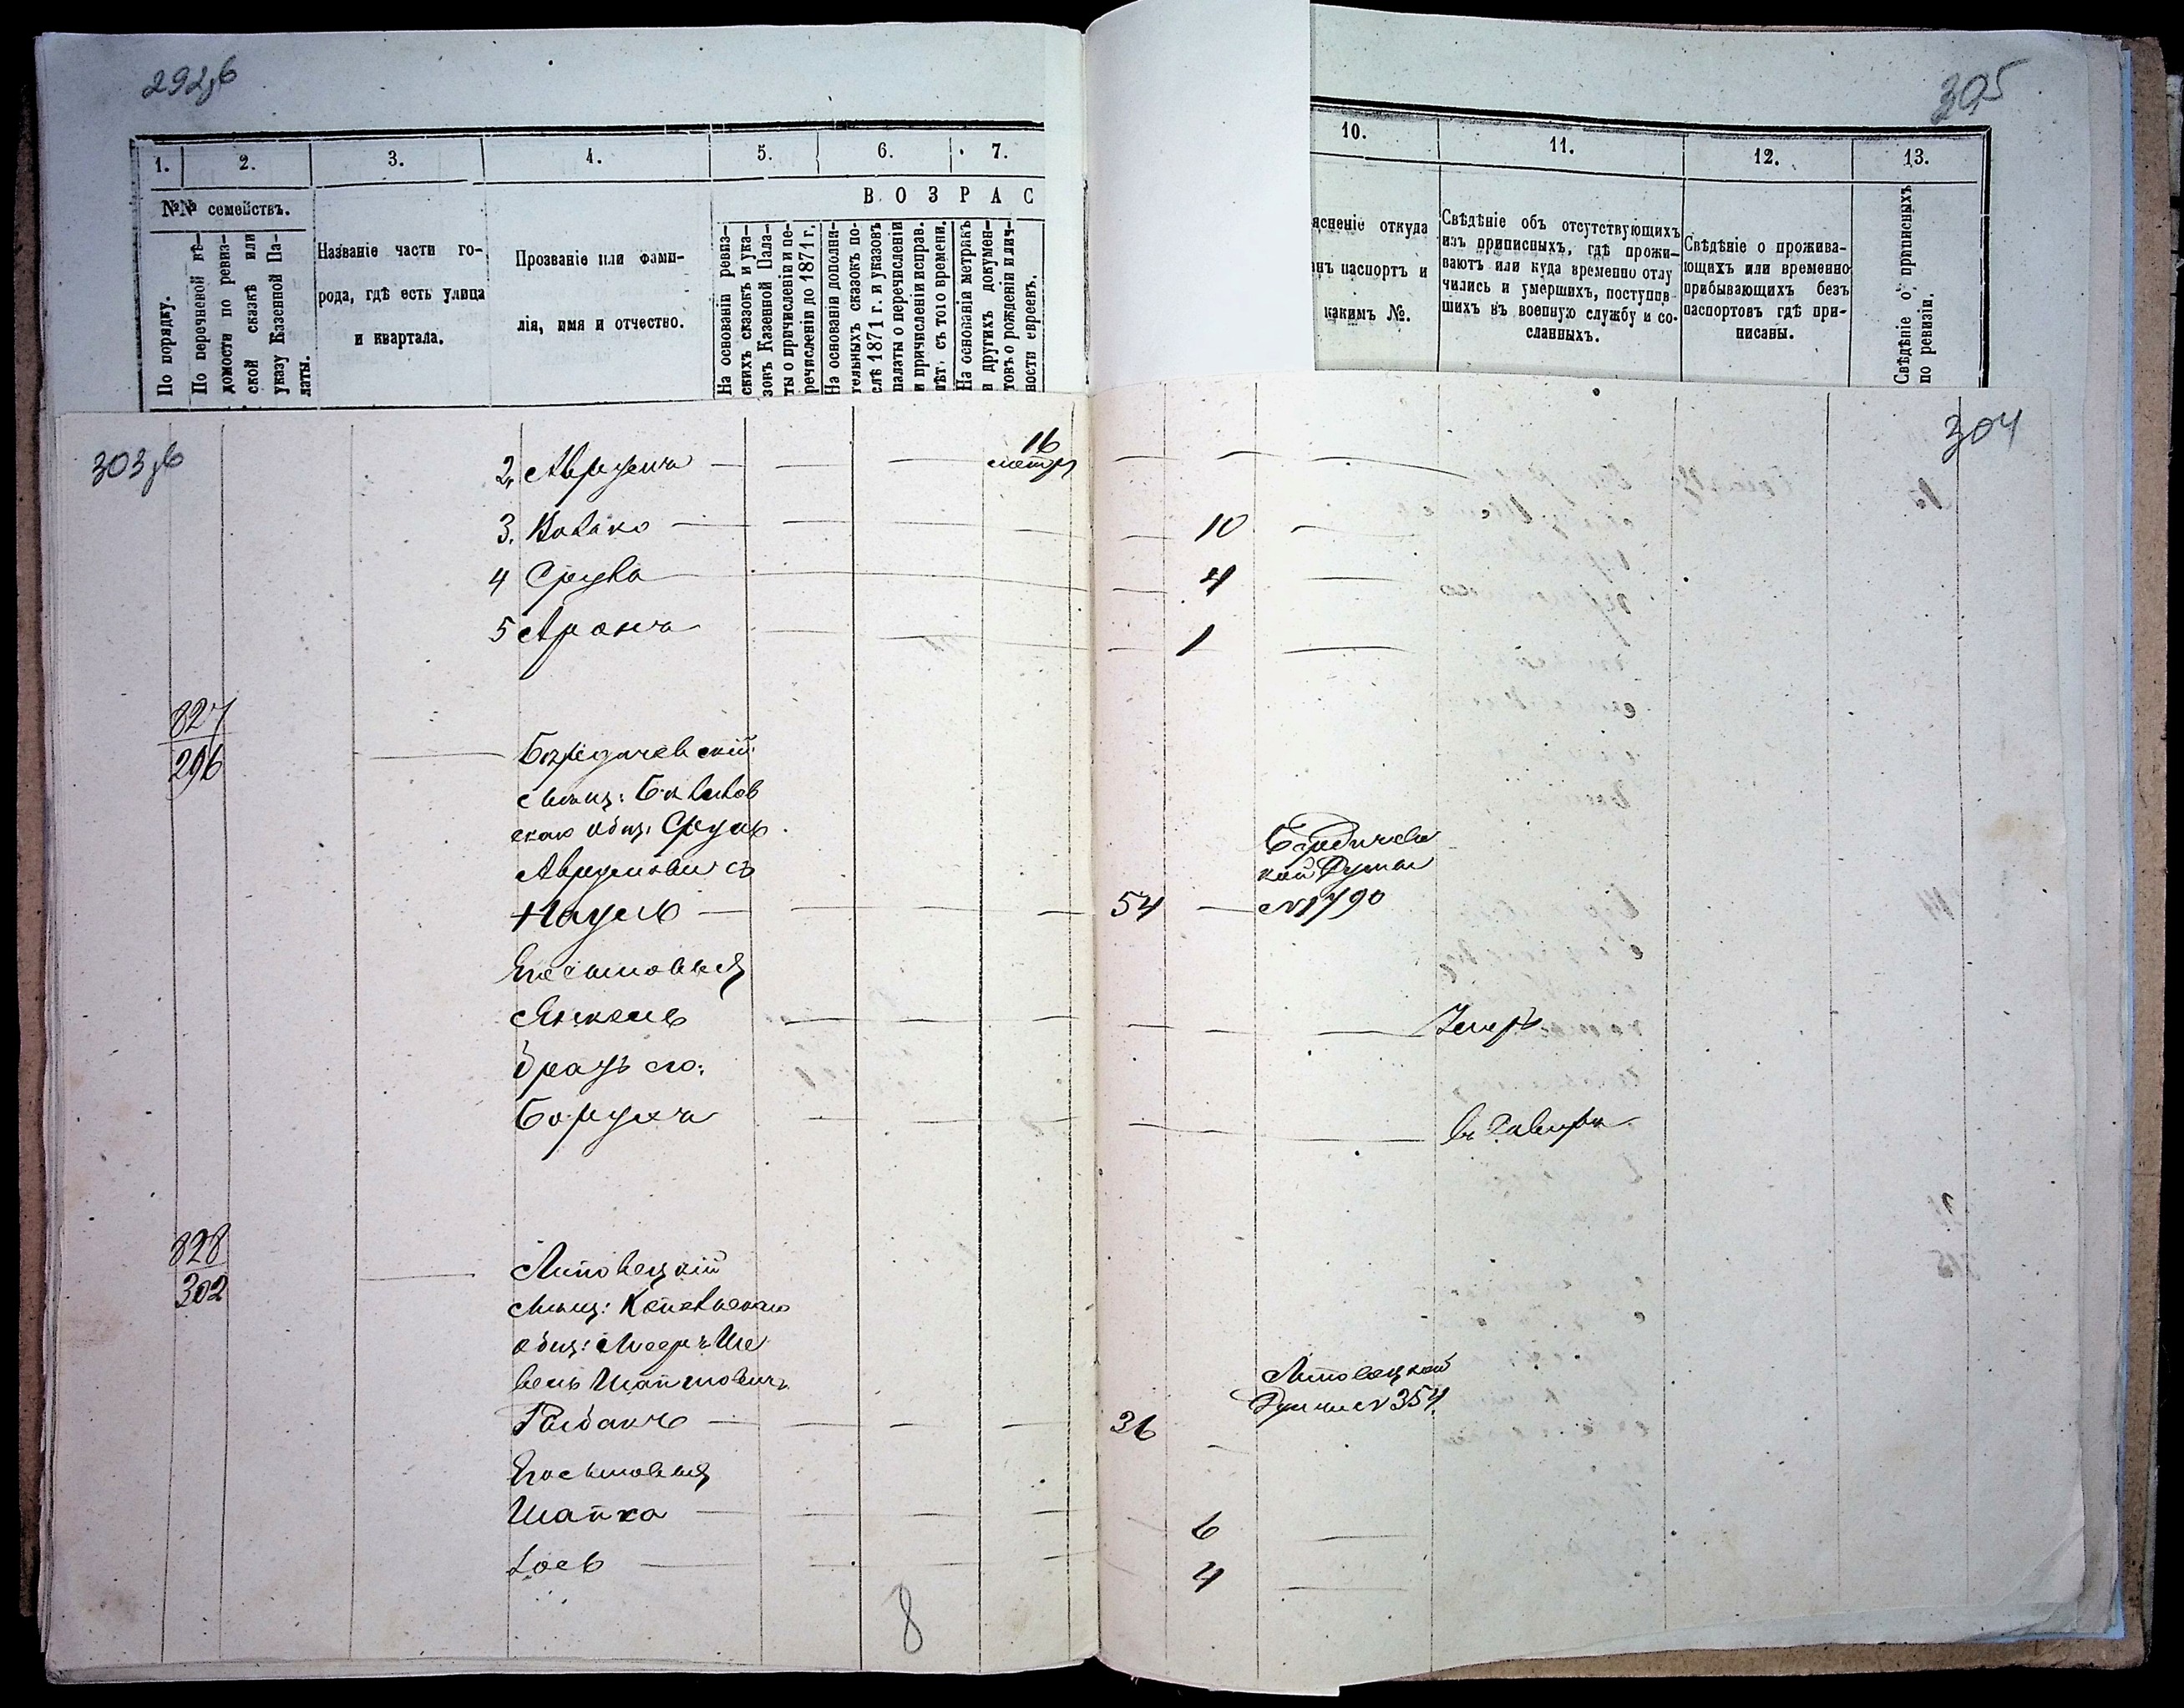 292об
305
1. 2. 3. 4. 5. 6. 7.
10. 11. 12. 13.
№№ семействъ.
По порядку.
По перечневой вѣ-
домости по ревиз-
ской сказкѣ или
указу Казенной Па-
латы.
Названіе части го-
рода, гдѣ есть улица
и квартала.
Прозваніе или фами-
лія, имя и отчество.
В О З Р А С
На основаніи ревиз-
скихъ сказокъ и ука-
зовъ Казенной Пала-
ты о причисленіи и пе-
речисленіи до 1871 г.
На основаніи дополни-
тельныхъ сказокъ по-
слѣ 1871 г. и указовъ
палаты о перечисленіи
и причисленіи исправ.
лѣт. съ того времени.
На основаніи метрикъ
и другихъ докумен-
товъ о рожденіи и лич-
ности евреевъ.
ясненіе откуда
нъ паспортъ и
какимъ №.
Свѣдѣніе объ отсутствующихъ
изъ приписныхъ, гдѣ прожи-
ваютъ или куда временно отлу
чились и умершихъ, поступив-
шихъ въ военную службу и со-
сланныхъ.
Свѣдѣніе о прожива-
ющихъ или временно
прибывающихъ безъ
паспортовъ гдѣ при-
писаны.
Свѣдѣніе о приписныхъ
по ревизіи.
303об
304
2. Аврумъ 16
метр
3. Волько 10
4 Сруль 4
5 Аронъ 1
827
296
Бердичевскій
мѣщ:
общ: Сруль
Аврумовичъ
Нагель 54
Бердичев
кой Думы
№ 1790
Сыновья
Янкель Умеръ
братъ его:
Борухъ
828
302
Липовецкій
мѣщ:
общ: Мееръ Ше
вель Шапшовичъ
Рыбакъ 36
Липовецкой
Думы № 354
Сыновья
Шапка 6
Іось 4
8